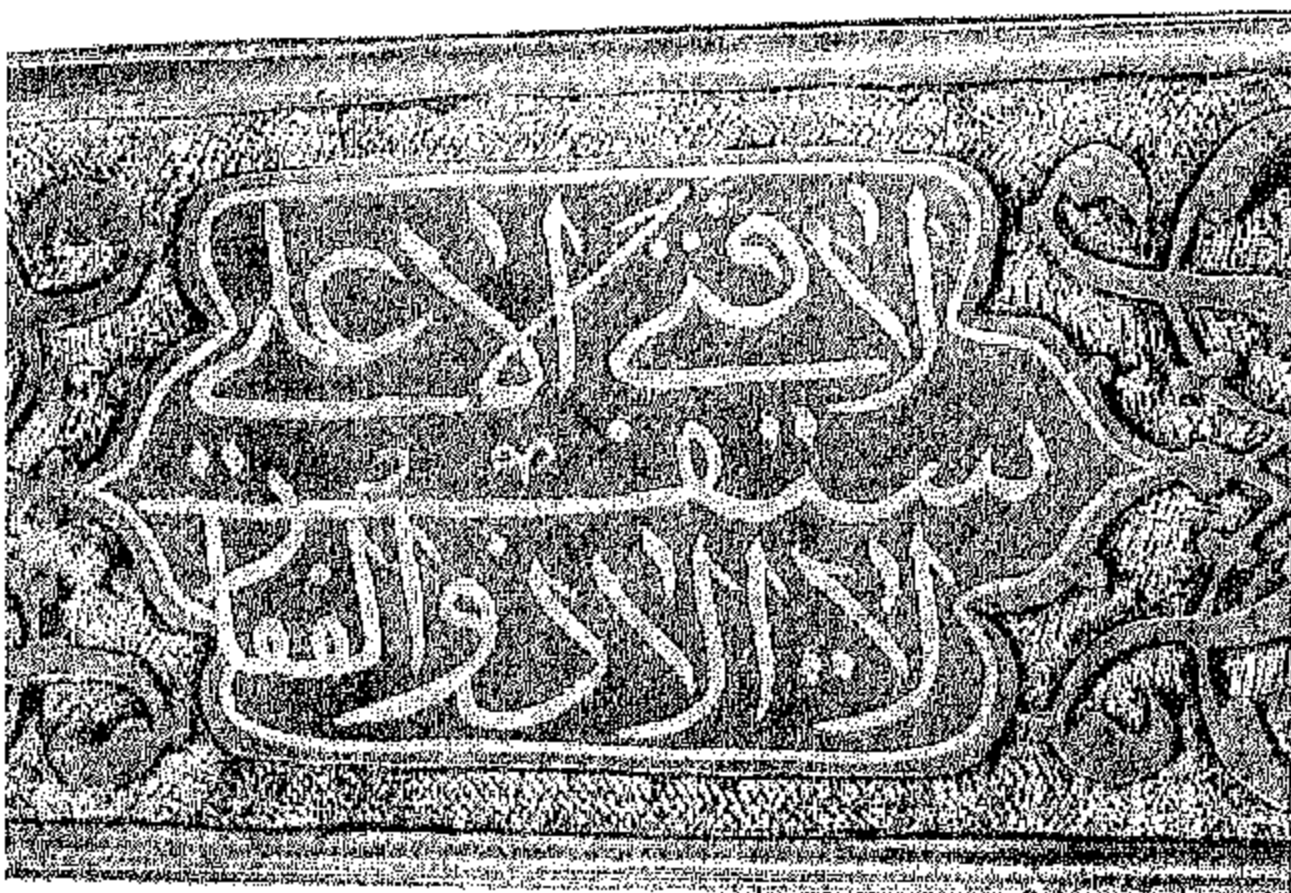 لا فتى الا علي
لا سيف الا ذو الفقار